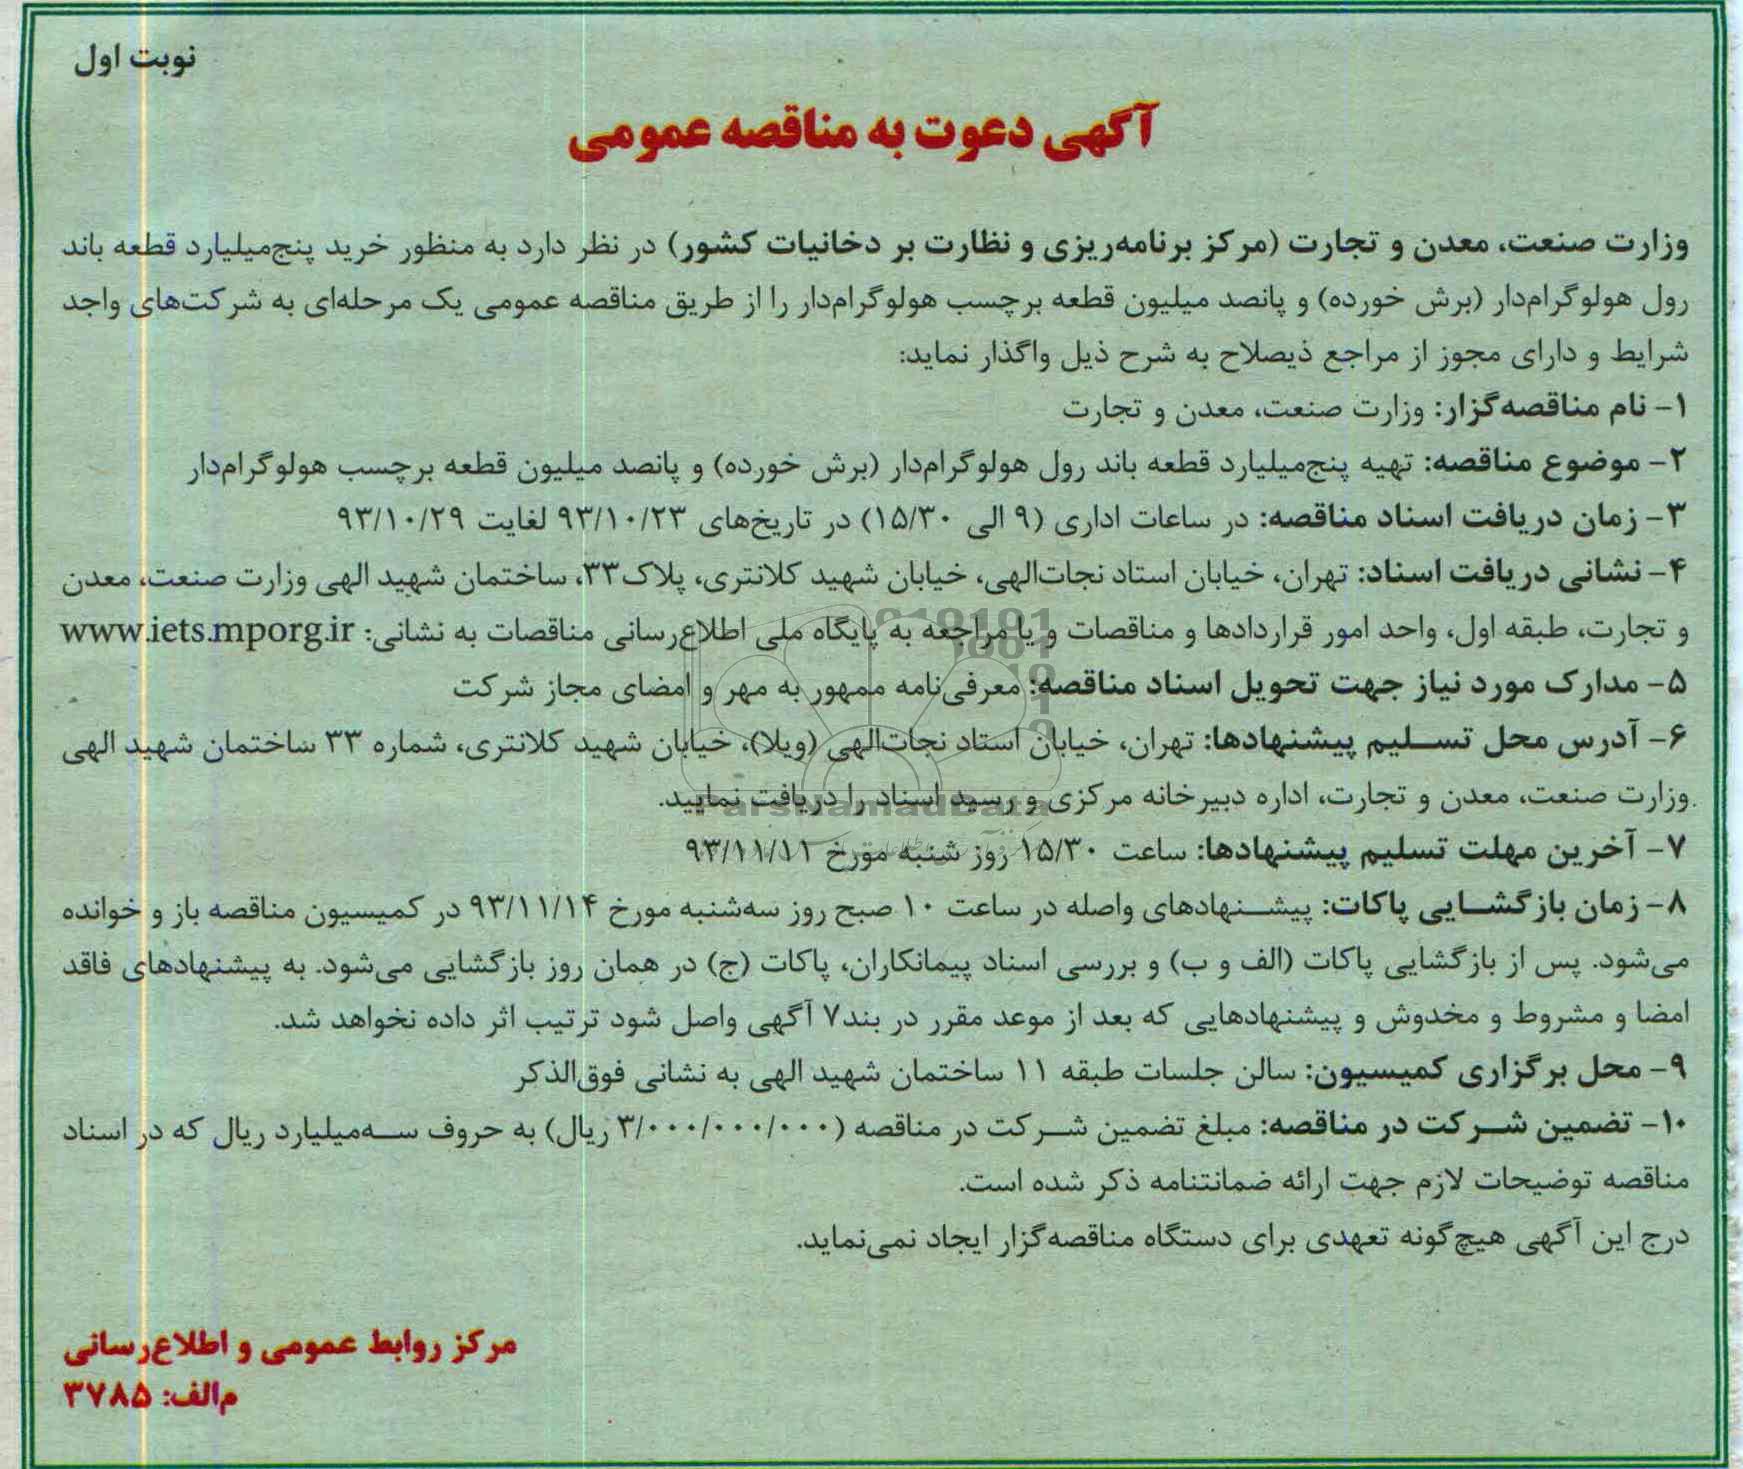 نوبت اول
آگهی دعوت به مناقصه عمومی
وزارت صنعت، معدن و تجارت (مرکز برنامه‌ریزی و نظارت بر دخانیات کشور) در نظر دارد به منظور خرید پنج‌میلیارد قطعه باند
رول هولوگرام‌دار (برش خورده) و پانصد میلیون قطعه برچسب هولوگرام‌دار را از طریق مناقصه عمومی یک مرحله‌ای به شرکت‌های واجد
شرایط و دارای مجوز از مراجع ذیصلاح به شرح ذیل واگذار نماید:
۱- نام مناقصه‌گزار: وزارت صنعت، معدن و تجارت
۲- موضوع مناقصه: تهیه پنج‌میلیارد قطعه باند رول هولوگرام‌دار (برش خورده) و پانصد میلیون قطعه برچسب هولوگرام‌دار
۳- زمان دریافت اسناد مناقصه: در ساعات اداری (۹ الی ۱۵/۳۰) در تاریخ‌های ۹۳/۱۰/۲۳ لغایت ۹۳/۱۰/۲۹
۴- نشانی دریافت اسناد: تهران، خیابان استاد نجات‌الهی، خیابان شهید کلانتری، پلاک۳۳، ساختمان شهید الهی وزارت صنعت، معدن
و تجارت، طبقه اول، واحد امور قراردادها و مناقصات و یا مراجعه به پایگاه ملی اطلاع‌رسانی مناقصات به نشانی: www.iets.mporg.ir
۵- مدارک مورد نیاز جهت تحویل اسناد مناقصه: معرفی‌نامه ممهور به مهر و امضای مجاز شرکت
۶- آدرس محل تسلیم پیشنهادها: تهران، خیابان استاد نجات‌الهی (ویلا)، خیابان شهید کلانتری، شماره ۳۳ ساختمان شهید الهی
وزارت صنعت، معدن و تجارت، اداره دبیرخانه مرکزی و رسید اسناد را دریافت نمایید.
۷- آخرین مهلت تسلیم پیشنهادها: ساعت ۱۵/۳۰ روز شنبه مورخ ۹۳/۱۱/۱۱
۸- زمان بازگشایی پاکات: پیشنهادهای واصله در ساعت ۱۰ صبح روز سه‌شنبه مورخ ۹۳/۱۱/۱۴ در کمیسیون مناقصه باز و خوانده
می‌شود. پس از بازگشایی پاکات (الف و ب) و بررسی اسناد پیمانکاران، پاکات (ج) در همان روز بازگشایی می‌شود. به پیشنهادهای فاقد
امضا و مشروط و مخدوش و پیشنهادهایی که بعد از موعد مقرر در بند۷ آگهی واصل شود ترتیب اثر داده نخواهد شد.
۹- محل برگزاری کمیسیون: سالن جلسات طبقه ۱۱ ساختمان شهید الهی به نشانی فوق‌الذکر
۱۰- تضمین شرکت در مناقصه: مبلغ تضمین شرکت در مناقصه (۳/۰۰۰/۰۰۰/۰۰۰ ریال) به حروف سه‌میلیارد ریال که در اسناد
مناقصه توضیحات لازم جهت ارائه ضمانتنامه ذکر شده است.
درج این آگهی هیچ‌گونه تعهدی برای دستگاه مناقصه‌گزار ایجاد نمی‌نماید.
مرکز روابط عمومی و اطلاع‌رسانی
م‌الف: ۳۷۸۵
ParsNamadData